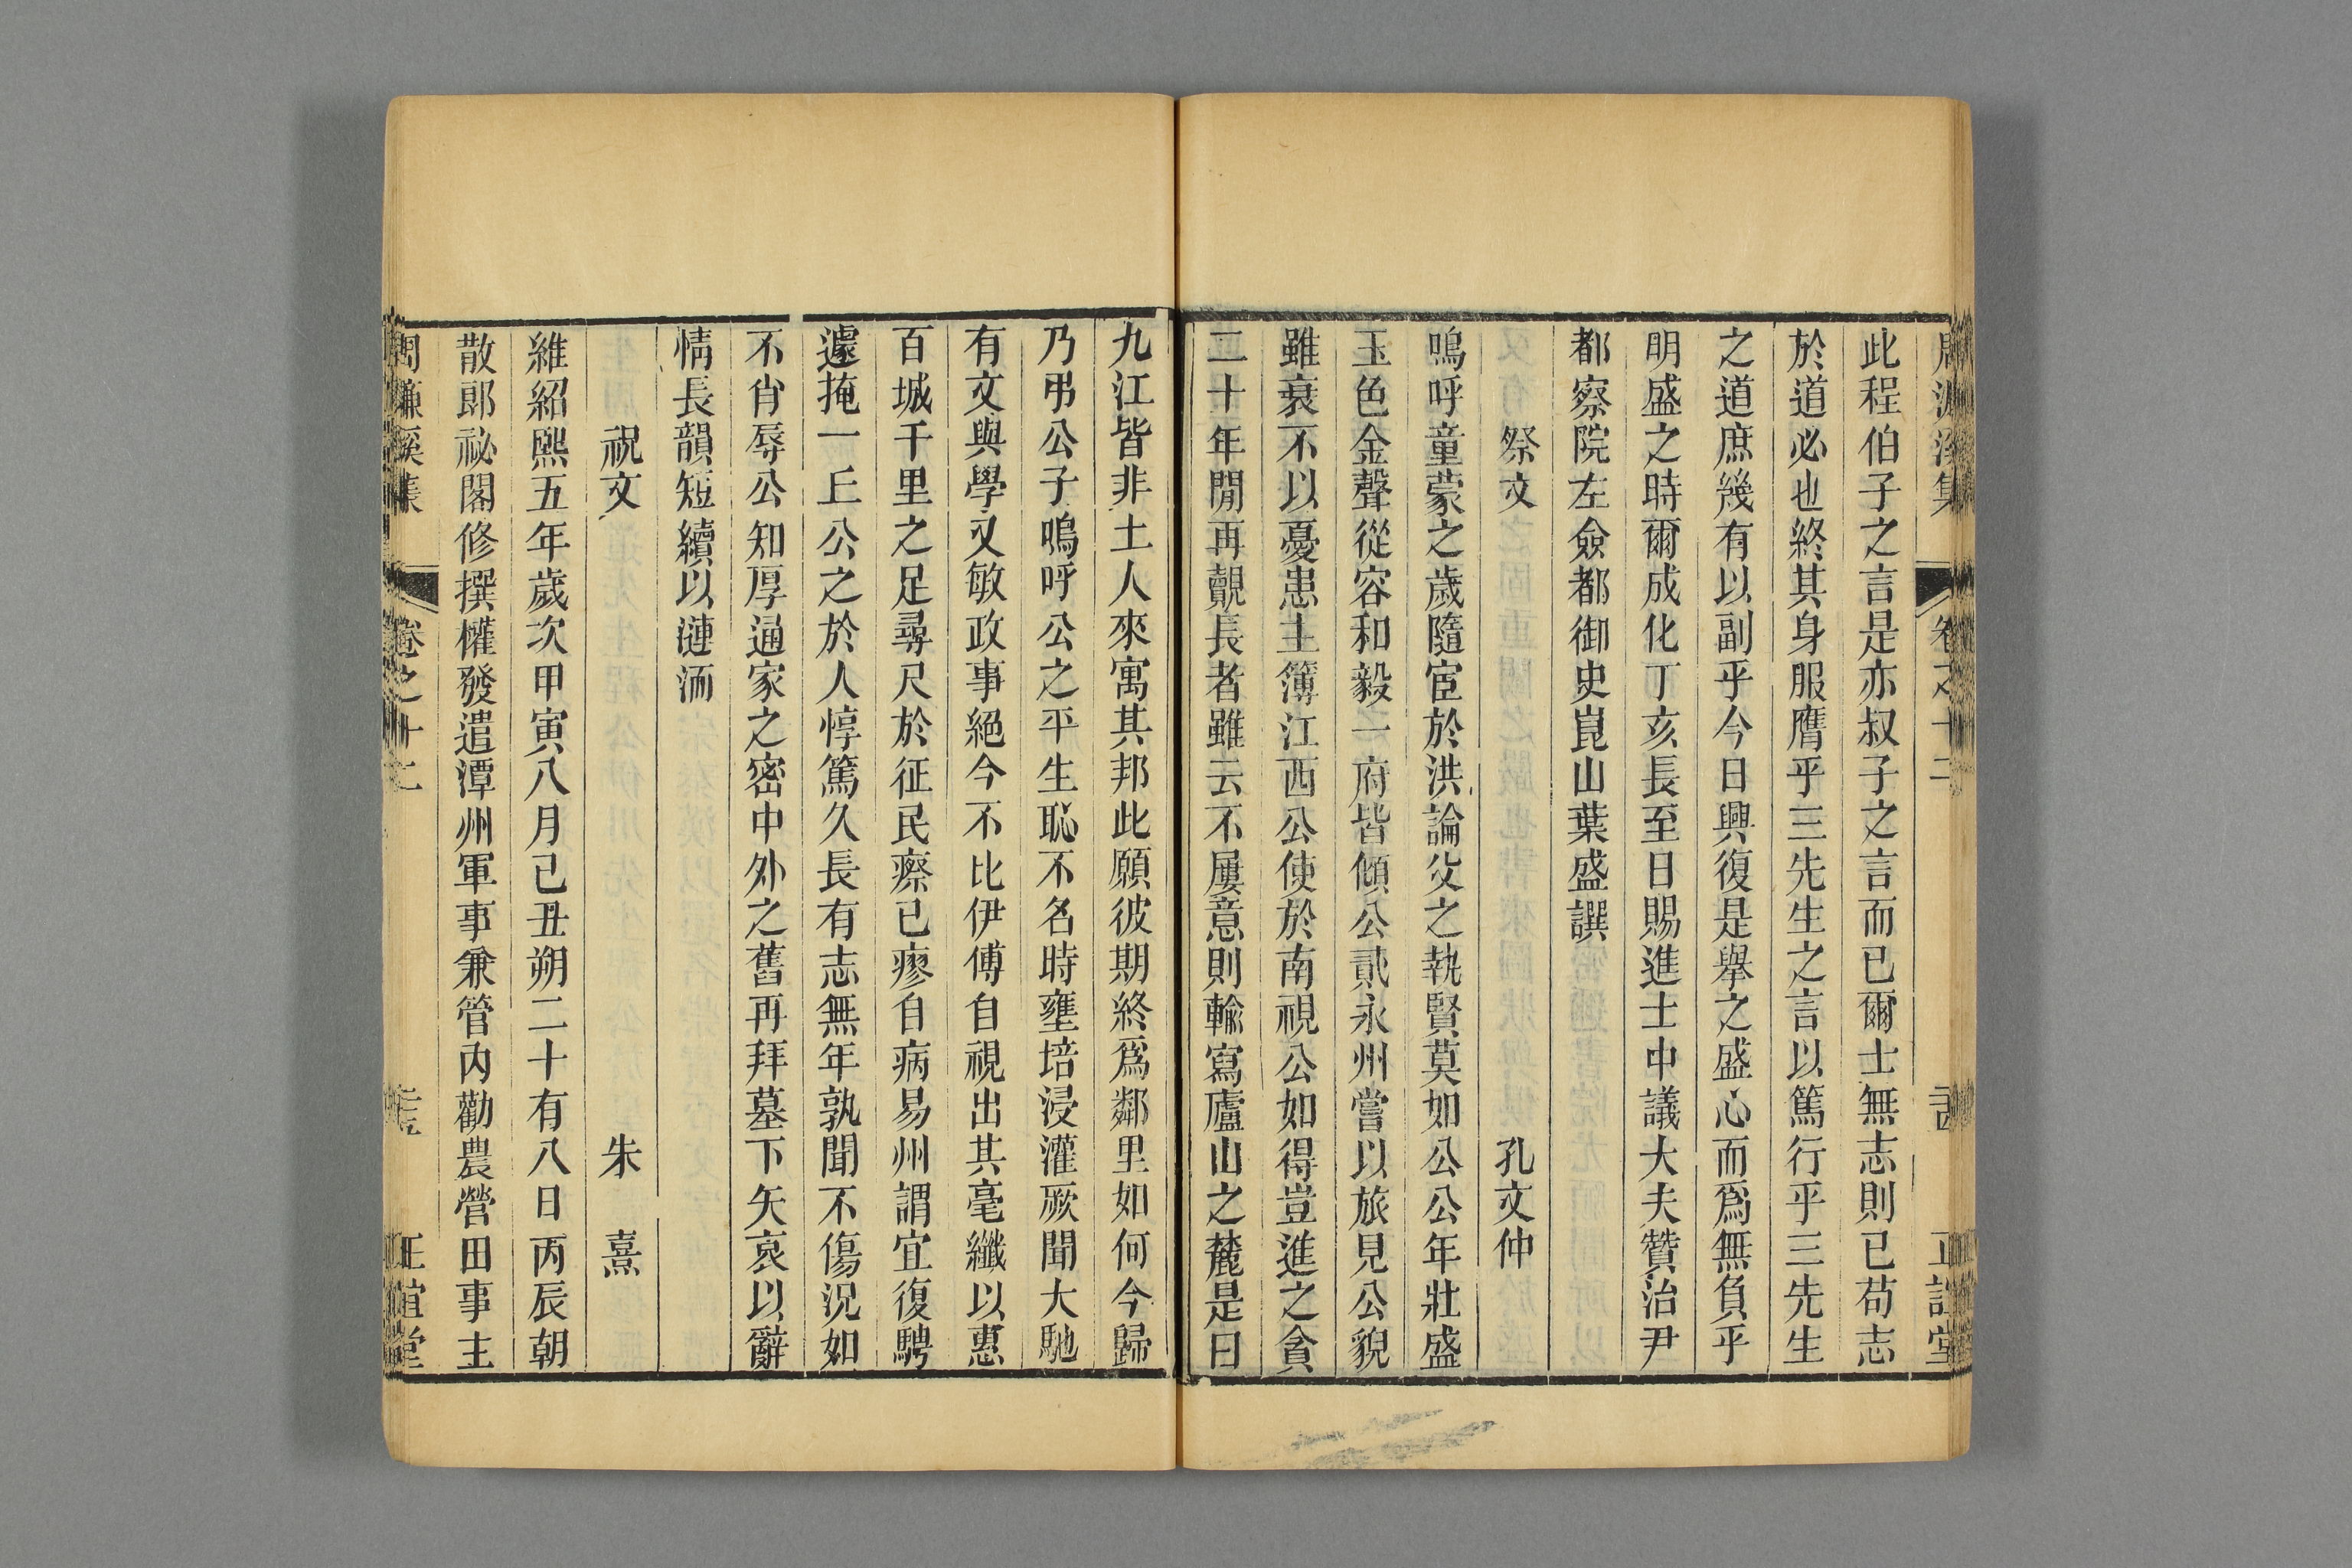 此程伯子之言是亦叔子之言而已爾士無志則已苟志
於道必也終其身服膺乎三先生之言以篤行乎三先生
之道庶幾有以副乎今日興復是舉之盛心而爲無負乎
明盛之時爾成化丁亥長至日賜進士中議大夫贊治尹
都察院左僉都御史崑山葉盛譔
祭文 孔文仲
嗚呼童蒙之歲隨宦於洪論父之執賢莫如公公年壯盛
玉色金聲從容和毅一府皆傾公貳永州嘗以旅見公貌
雖衰不以憂患主簿江西公使於南視公如得豈進之貪
二十年閒再覿長者雖云不屢意則輸寫廬山之麓是曰
九江皆非土人來寓其邦此願彼期終爲鄰里如何今歸
乃弔公子嗚呼公之平生恥不名時壅培浸灌厥聞大馳
有文與學又敏政事絕今不比伊傅自視出其毫纖以惠
百城千里之足尋尺於征民瘵已瘳自病易州謂宜復騁
遽掩一丘公之於人惇篤久長有志無年孰聞不傷況如
不肖辱公知厚通家之密中外之舊再拜墓下矢哀以辭
情長韻短續以漣洏
祝文 朱熹
維紹熙五年歲次甲寅八月已丑朔二十有八日丙辰朝
散郎祕閣修撰權發遣潭州軍事兼管內勸農營田事主
周濂溪集 卷之十二 正誼堂